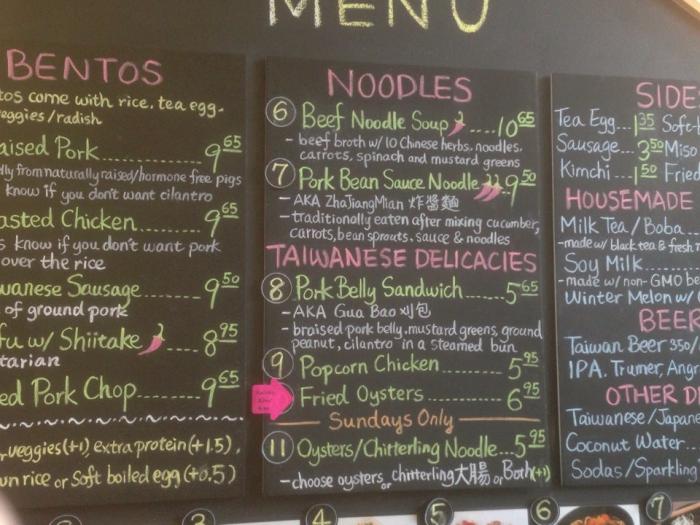 MENU
BENTOS
come with rice, tea egg,
veggies/radish
Pork 9.65
from naturally raised/hormone free pigs
know if you don't want cilantro
Chicken 9.65
know if you don't want pork
over the rice
Sausage 9.50
of ground pork
w/ Shiitake 8.95
Pork Chop 9.65
veggies (+1) extra protein (+1.5),
rice or Soft boiled egg (+0.5)
NOODLES
6 Beef Noodle Soup ....10.65
- beef broth w/ 10 Chinese herbs, noodles,
carrots, spinach and mustard greens
7 Pork Bean Sauce Noodle 9.50
- AKA ZhaJiangMian 炸醬麵
- traditionally eaten after mixing cucumber,
carrots, bean sprouts, sauce & noodles
TAIWANESE DELICACIES
8 Pork Belly Sandwich......5.65
- AKA Gua Bao 刈包
- braised pork belly, mustard greens, ground
peanut, cilantro in a steamed bun
9 Popcorn Chicken ---- 5.95
Fried Oysters ---- 6.95
Sundays Only
11 Oysters/Chitterling Noodle...5.95
- choose oysters or chitterling 大腸 or Both (+1)
Tea Egg...1.35
Sausage...3.50 Miso
Kimchi....1.50 Fried
HOUSEMADE
Milk Tea / Boba
- made w/ black tea & fresh
Soy Milk
- made w/ non-GMO
Winter Melon w/
BEER
Taiwan Beer
IPA, Trumer,
OTHER
Taiwanese/
Coconut Water
Sodas/Sparkling
3 4 5 6 7